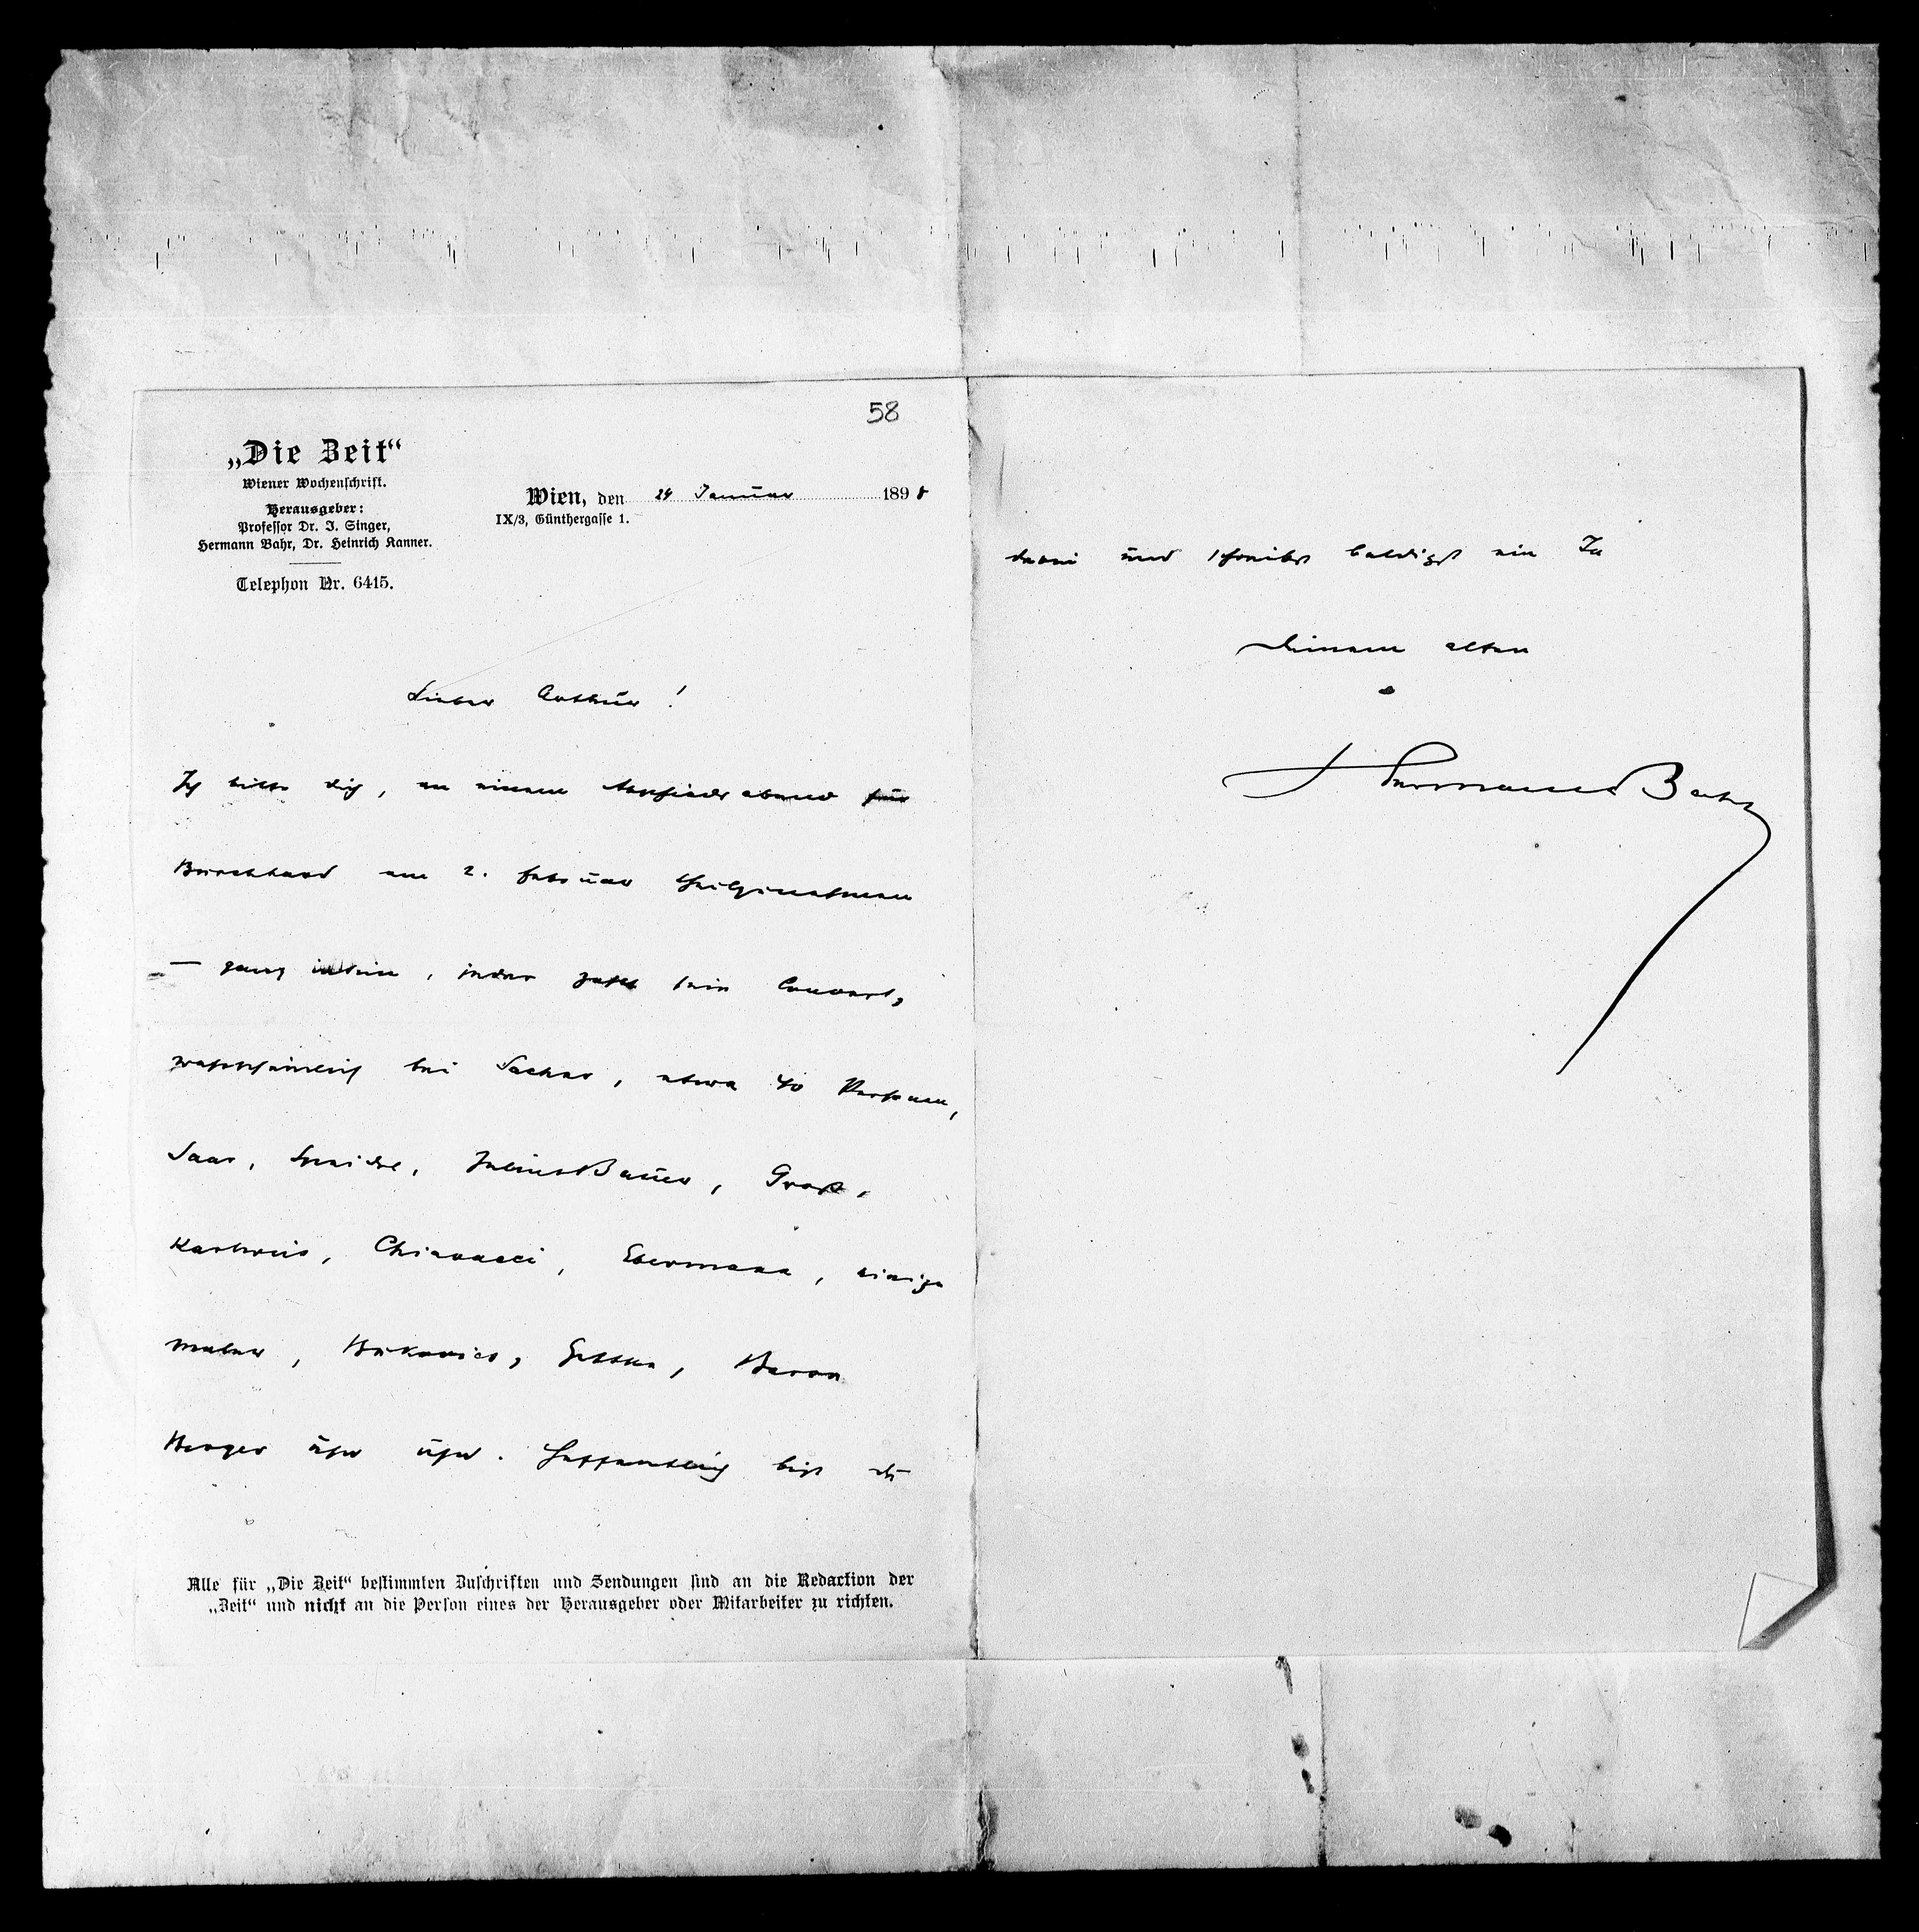 58
„Die Zeit“
Wiener Wochenschrift.
Herausgeber:
Professor Dr. J. Singer,
Hermann Bahr, Dr. Heinrich Kanner.
Telephon Nr. 6415.
Wien, den 24 Januar 1898
IX/3, Günthergasse 1.
Lieber Arthur!
Ich bitte dich, an einem Abschiedsabend für
Burckhard am 2. Februar theilzunehmen
— ganz intim, jeder zahlt sein Couvert,
wahrscheinlich bei Sacher, etwa 40 Personen,
Saar, Speidel, Julius Bauer, Groß,
Karlweis, Chiavacci, Ebermann, einige
Maler, Bukovics, Gettke, Baron
Berger usw usw. Hoffentlich bist du
dabei und schreibst baldigst ein Ja
Deinem alten
Hermann Bahr
Alle für „Die Zeit“ bestimmten Zuschriften und Sendungen sind an die Redaction der
„Zeit“ und nicht an die Person eines der Herausgeber oder Mitarbeiter zu richten.